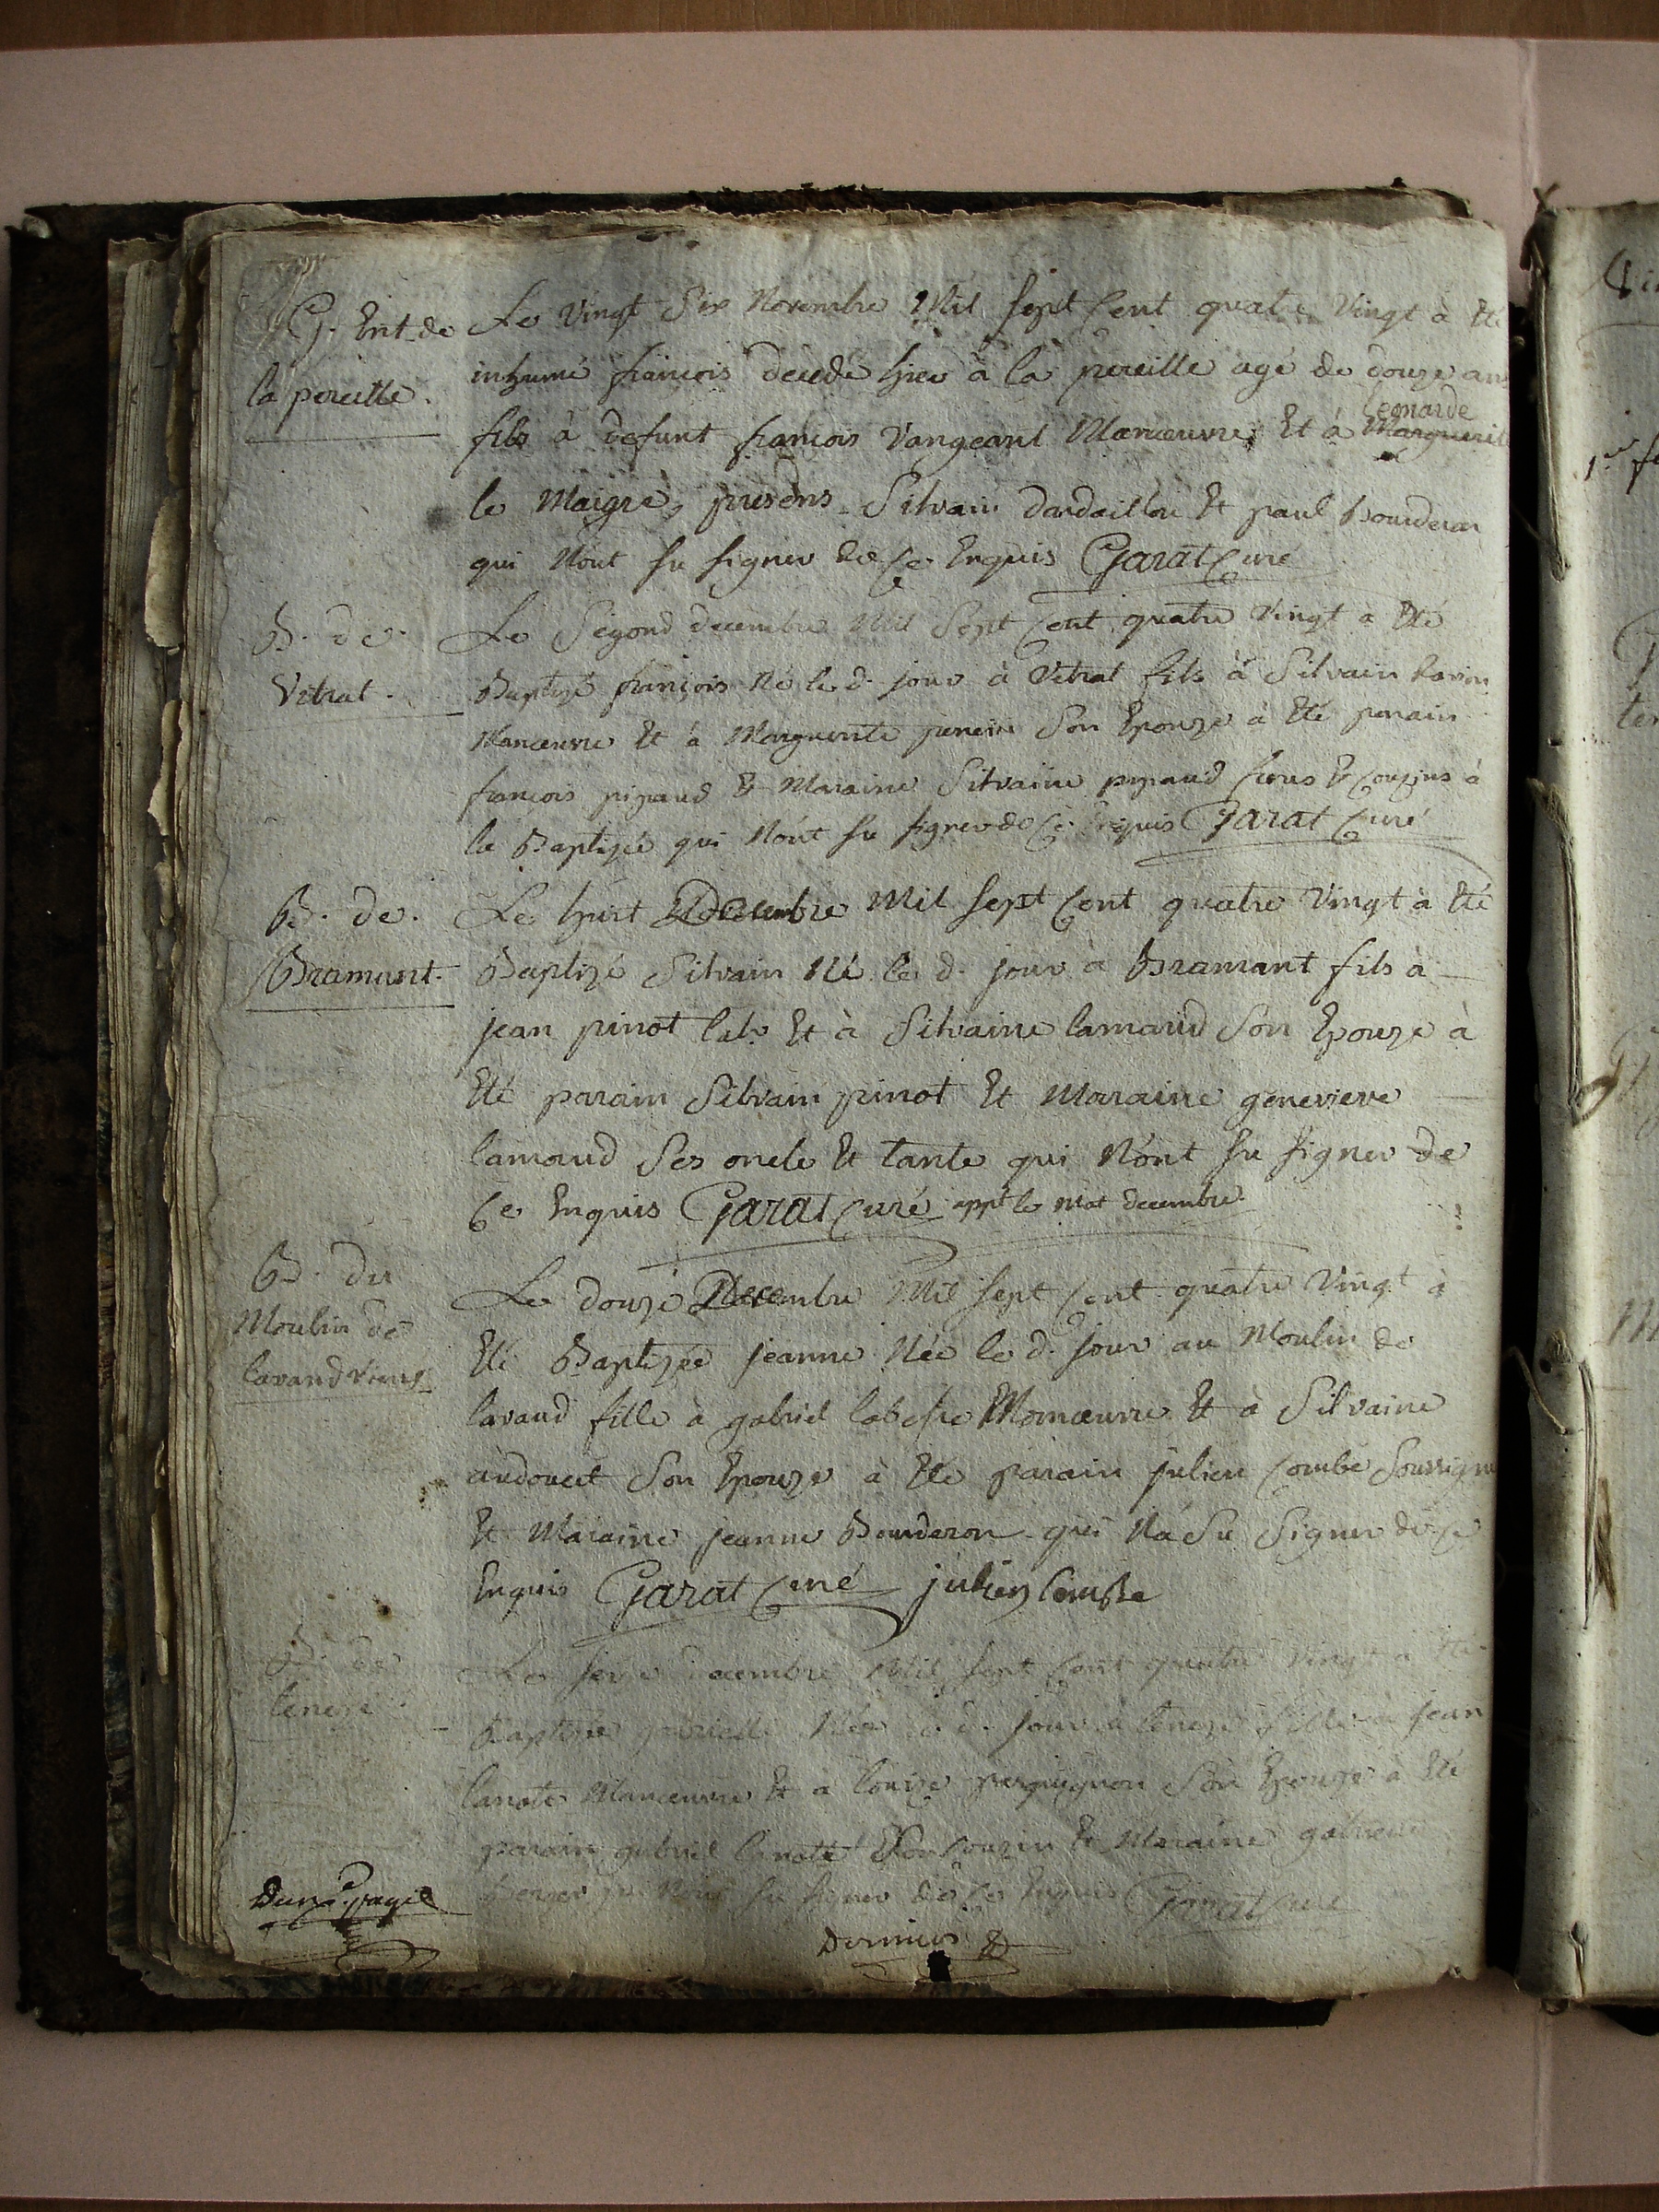 G. Ent. de
la pereille.
Le Vingt Six Novembre Mil sept Cent quatre Vingt à Eté
inhumé françois décédé hier à la pereille agé de douze ans
fils à defunt françois Vangeant Manœuvre Et à Marguerite
Leonarde
le Maigre, presens Silvain dardaillon Et paul Bourderon
qui N'ont su signer de Ce Enquis Garat Curé
B. de
Vitrat.
Le Segond decembre Mil Sept Cent quatre Vingt a Eté
Baptizé françois Né le d. jour à Vitrat fils à Silvain
Manœuvre Et à Marguerite Son Epouze à Eté parain
françois pipaud Et Maraine Silvaine pipaud Et Couzins à
le Baptizé qui N'ont su signer de Ce Enquis Garat Curé
B. de.
Bramant.
Le huit Decembre Mil sept Cent quatre Vingt à Eté
Baptizé Silvain Né le d. jour à Bramant fils à
jean pinot lab. Et à Silvaine lamaud Son Epouze à
Eté parain Silvain pinot Et Maraine genevieve
lamaud Ses oncle Et tante qui N'ont su signer de
Ce Enquis Garat Curé app. le mot decembre
B. du
Moulin de
lavaud
Le douze Decembre Mil sept Cent quatre Vingt à
Eté Baptizée jeanne Née le d. jour au Moulin de
lavaud fille à gabriel Manœuvre Et à Silvaine
audoucet Son Epouze à Eté parain julien Combe Soussigné
Et Maraine jeanne Bourderon qui N'a Su Signer de Ce
Enquis Garat Curé julien Combe
B. de
Le decembre Mil sept Cent quatre Vingt a Eté
Baptizée Née le d. jour à fille à jean
lanote Manœuvre Et à louize Son Epouze à Eté
parain gabriel lanote Son Couzin Et Maraine
N'ont su signer de Ce Enquis Garat Curé
page
Dernier